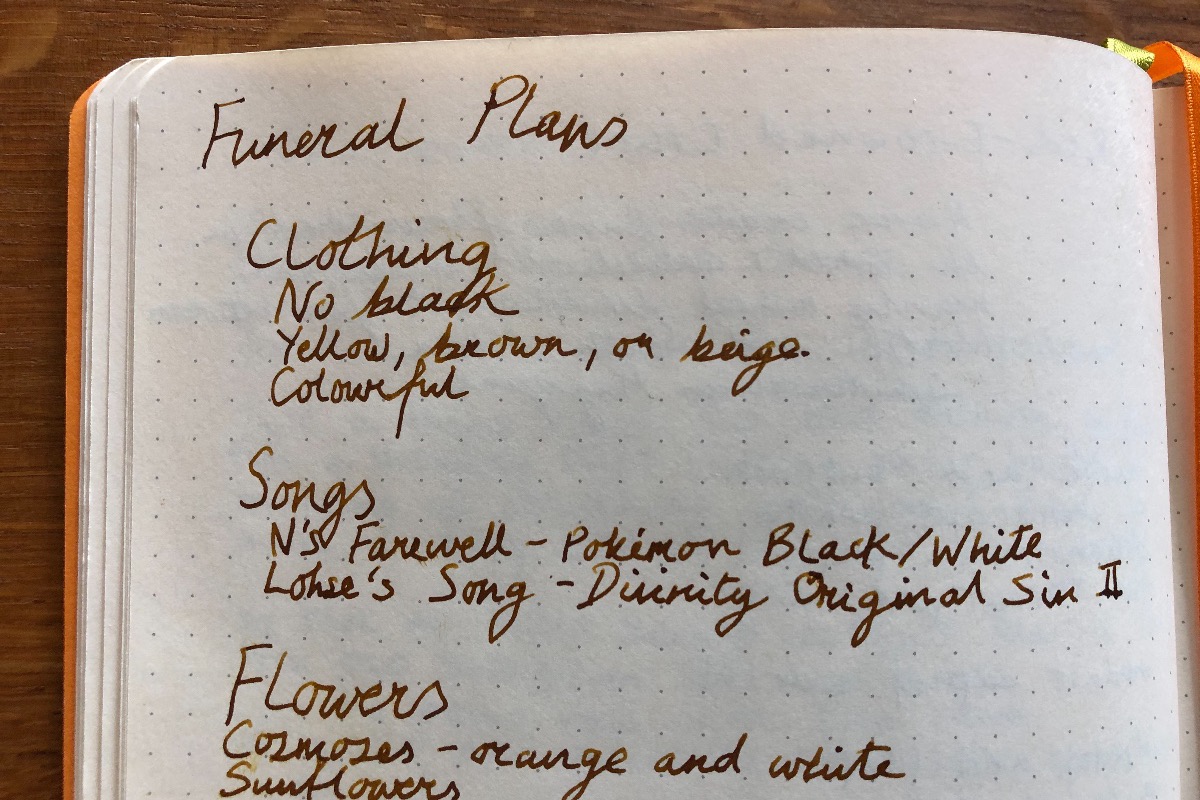 Funeral Plans
Clothing
No black
Yellow, brown, or beige.
Colourful
Songs
N's Farewell - Pokémon Black/White
Lohse's Song - Divinity Original Sin II
Flowers
Cosmoses - orange and white
Sunflowers